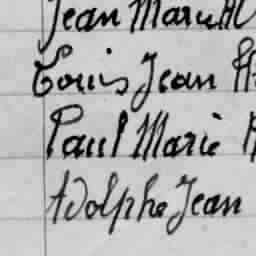 Jean Marie
Louis Jean
Paul Marie
Adolphe Jean